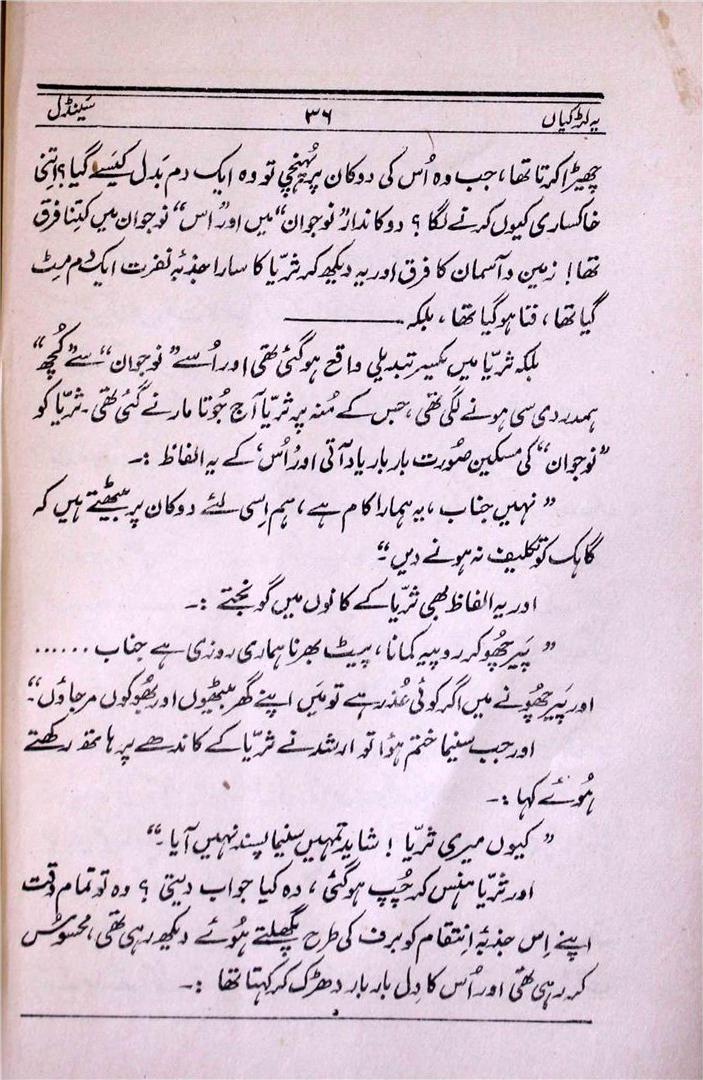 یہ لڑکیاں ۳۶ سینڈل
چھیڑا کرتا تھا، جب وہ اُس کی دوکان پر پُہنچی تو وہ ایک دم بَدل کیَسے گیا؟ اِتنی
خاکساری کیوں کرنے لگا؟ دوکاندار ”نوجوان“ میں اور ”اس“ نوجوان میں کِتنا فرق
تھا! زمین و آسمان کا فرق اور یہ دیکھ کر ثریّا کا سارا جذبۂ نفرت ایک دم مِٹ
گیا تھا، فنا ہو گیا تھا، بلکہ ———
بلکہ ثریّا میں یکسر تبدیلی واقع ہو گئی تھی اور اُسے ”نوجوان“ سے ”کُچھ“
ہمدردی سی ہونے لگی تھی، جس کے مُنہ پر ثریّا آج جُوتا مارنے گئی تھی۔ ثریّا کو
”نوجوان“ کی مسکین صُورت بار بار یاد آتی اور اُس کے یہ الفاظ :۔
” نہیں جناب، یہ ہمارا کام ہے، ہم اِسی لئے دوکان پر بیٹھتے ہیں کہ
گاہک کو تکلیف نہ ہونے دیں“۔
اور یہ الفاظ بھی ثریّا کے کانوں میں گونجتے :۔
” پَیر چھُو کر روپیہ کمانا، پیٹ بھرنا ہماری روزی ہے جناب ......
اور پَیر چھُونے میں اگر کوئی عُذر ہے تو مَیں اپنے گھر بیٹھوں اور بھُوکوں مر جاؤں“۔
اور جب سنیما ختم ہوا تو ارشد نے ثریّا کے کاندھے پر ہاتھ رکھتے
ہُوئے کہا :۔
” کیوں میری ثریّا! شاید تمہیں سنیما پسند نہیں آیا۔“
اور ثریّا ہنس کر چُپ ہو گئی، وہ کیا جواب دیتی؟ وہ تو تمام وقت
اپنے اِس جذبۂ اِنتقام کو برف کی طرح پگھلتے ہُوئے دیکھ رہی تھی، محسوس
کر رہی تھی اور اُس کا دِل بار بار دھڑک کر کہتا تھا :۔